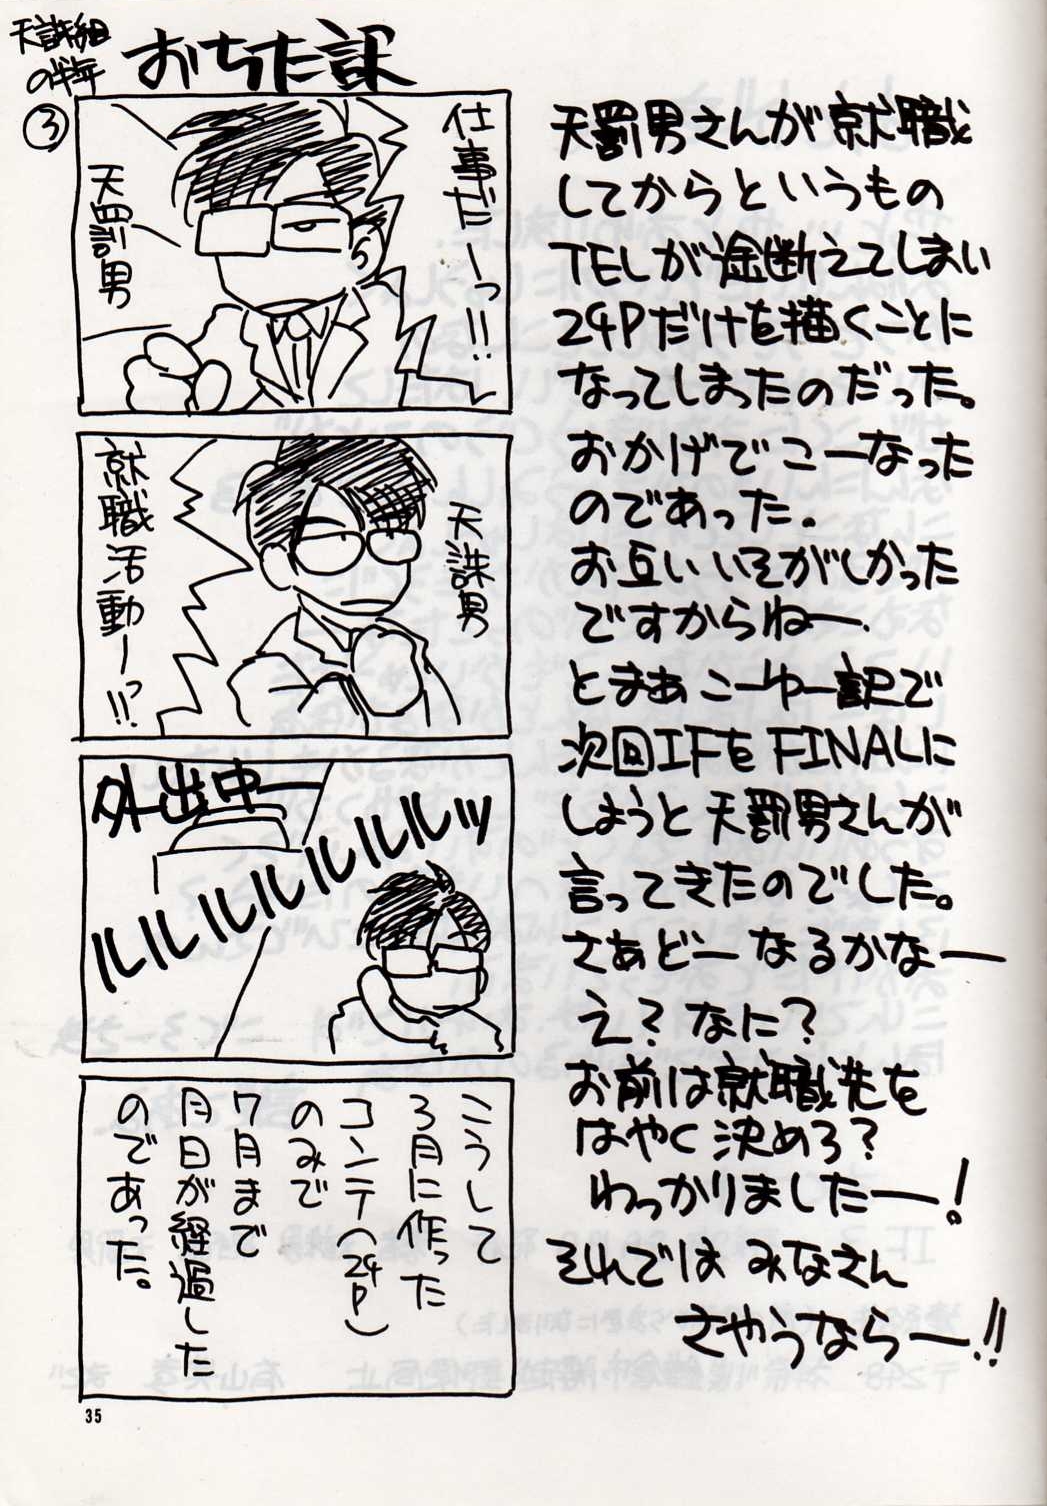 天誅組
の半年
おちた訳
③
仕事だーっ!!
天罰男
天誅男
就職活動ーっ!!
外出中ー
ルルルルルルルルッ
こうして
3月に作った
コンテ(24P)
のみで
7月まで
月日が経過した
のであった。
天罰男さんが就職
してからというもの
TELが途断えてしまい
24Pだけを描くことに
なってしまったのだった。
おかげでこーなった
のであった。
お互いいそがしかった
ですからねー.
とまあこーゆー訳で
次回IFをFINALに
しようと天罰男さんが
言ってきたのでした。
さあどーなるかなー
え?なに?
お前は就職先を
はやく決めろ?
わっかりましたーー!
それではみなさん
さやうならー!!
35